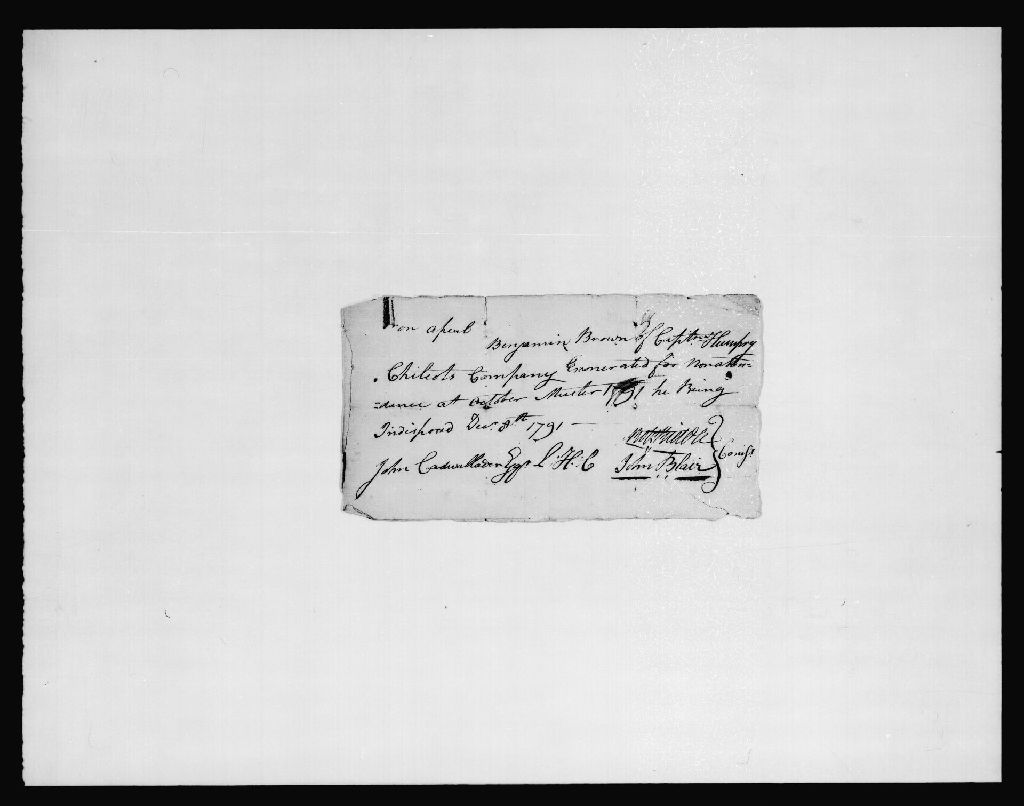 on apeal Benjamin Brown of Captn. Humpry
Chilcots Company Exnerated for nonatten=
=dance at October Muster 1791 he Being
Indisposd Decr. 8th 1791 —
John Cadwallader Esqr. L. H. C
John Blair